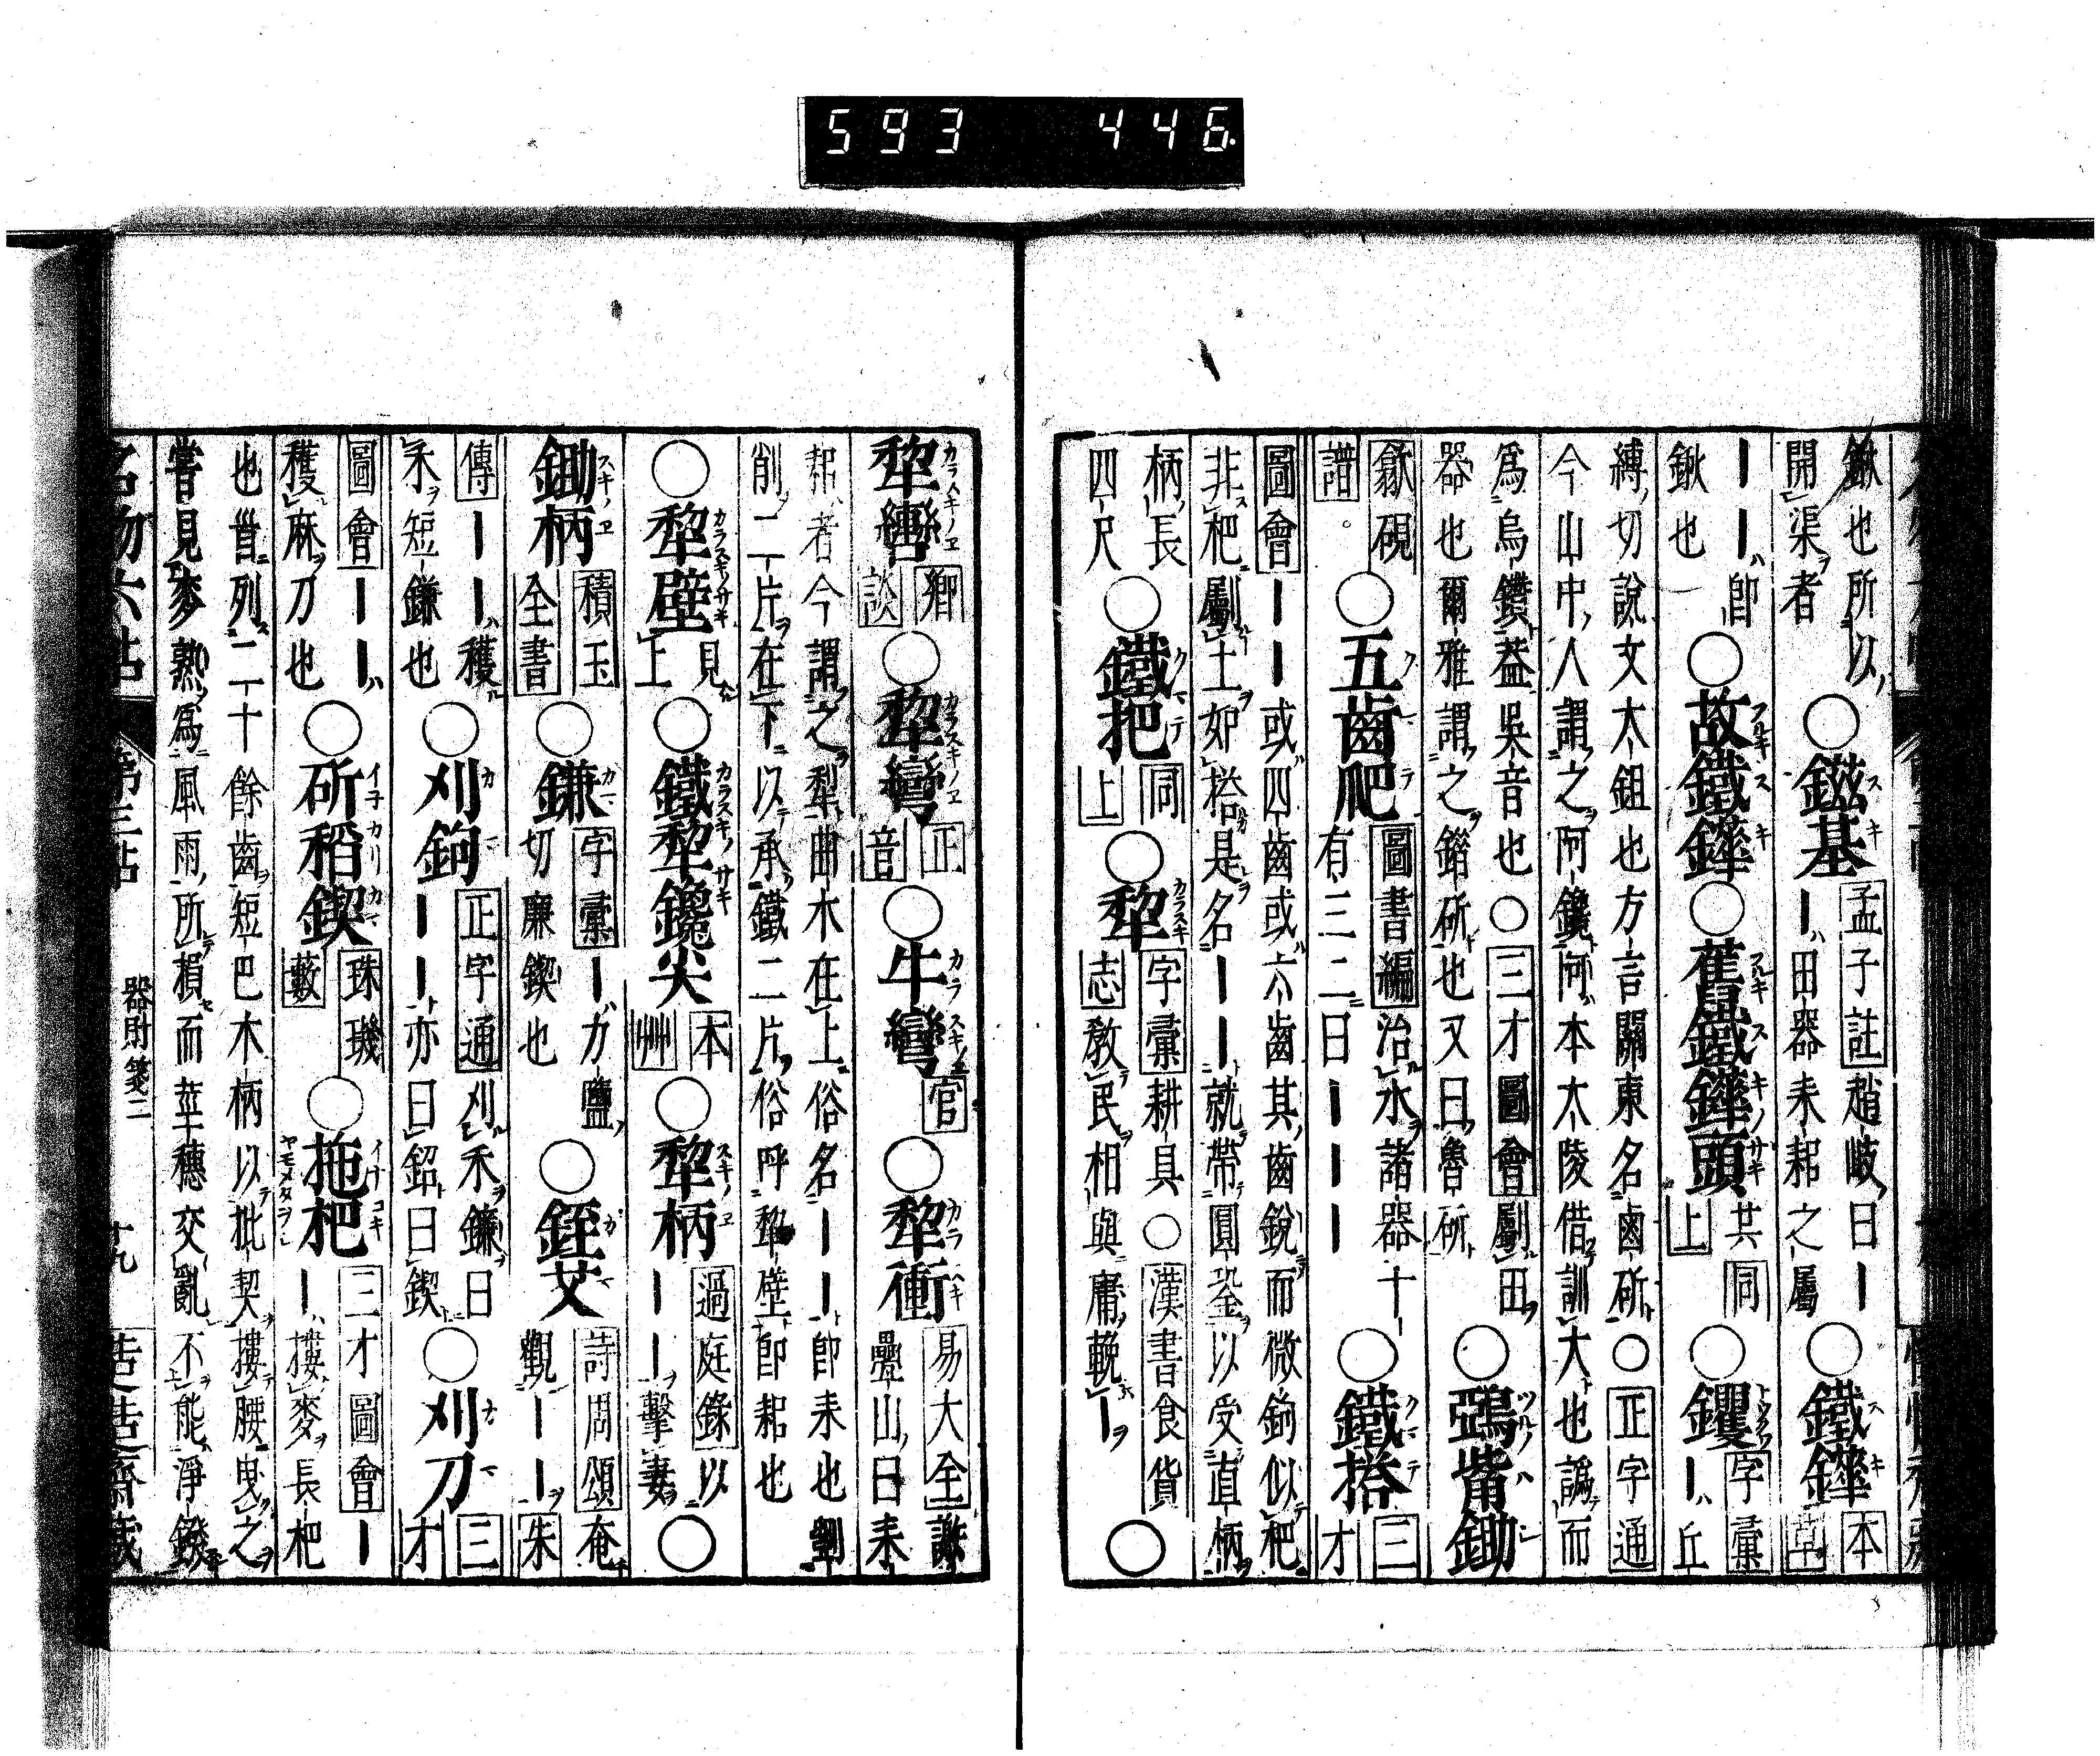 鍬也所以
開渠者
○鎡基
孟子註趙岐曰—
—田器耒耜之屬
○鐵鏵
本
草
——即
鍬也
○故鐵鏵○舊鐵鏵頭
共同
上
○钁
字彙
—丘
縛切說文大鉏也方言關東名鹵斫○正字通
今山中人謂之阿鑱阿本大陵借訓大也譌而
爲烏鑽葢吳音也○三才圖會劚田
器也爾雅謂之鐯斫也又曰魯斫
○鵶觜鋤
歙硯
譜。
○五齒爬
圖書編治水諸器十
有三二曰———
○鐵搭
三
才
圖會——或四齒或六齒其齒銳而微鉤似杷
非杷劚土如搭是名——就帶圓銎以受直柄
柄長
四尺
○鐵把
同
上
○犂
字彙耕具○漢書食貨
志教民相與庸輓—
○
犂轡
鄉
談
○犂彎
正
音
○牛彎
官
○犂衝
易大全謝
疊山曰耒
耜者今謂之犁曲木在上俗名——即耒也劉
削二片在下以承鐵二片俗呼犂壁即耜也
○犂壁
見
上
○鐵犂鑱尖
本
艸
○犂柄
過庭錄以
——擊妻
○
鋤柄
積玉
全書
○鎌
字彙—力鹽
切廉鍥也
○銍艾
詩周頌奄
觀——朱
傳——穫
禾短鎌也
○刈鉤
正字通刈禾鎌曰
——亦曰鉊曰鍥
○刈刀
三
才
圖會——
穫麻刀也
○斫稻鍥
珠璣
藪
○拖杷
三才圖會—
—摟麥長杷
也丗列二十餘齒短巴木柄以批契摟腰曳之
嘗見麥熟爲風雨所損而莖穗交亂不能淨鏺
名物六帖 第三帖 器財箋二 十九
593 446